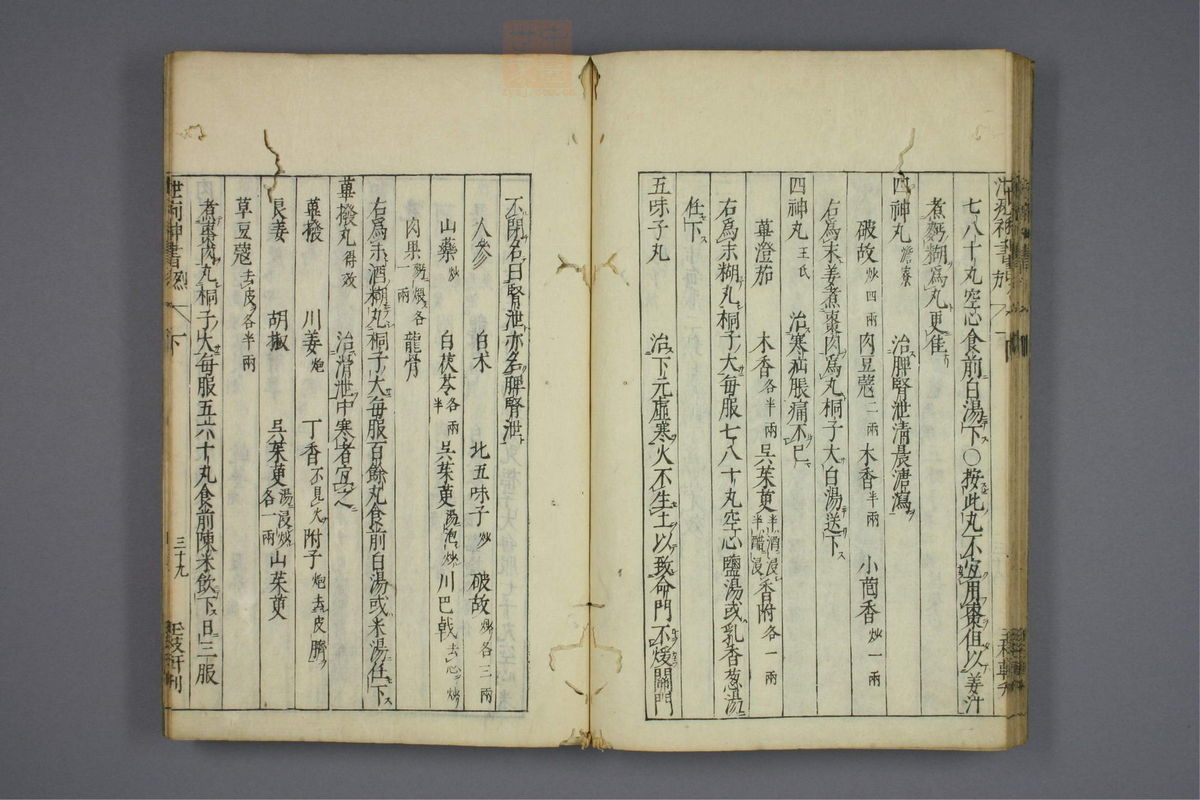 七八十丸空心食前白湯下○按此丸不宜用棗但以姜汁
煮麪糊爲丸更佳
四神丸 澹寮 治脾腎泄清晨溏瀉
破故 炒四兩 肉豆蔻 二兩 木香 半兩 小茴香 炒一兩
右爲末姜煮棗肉爲丸桐子大白湯送下
四神丸 王氏 治寒疝脹痛不已
蓽澄茄 木香 各半兩 呉茱萸 半酒浸半醋浸 香附 各一兩
右爲末糊丸桐子大每服七八十丸空心鹽湯或乳香葱湯
任下
五味子丸 治下元虛寒火不生土以致命門不煖關門
不閉名曰腎泄亦名脾腎泄
人參 白朮 北五味子 炒 破故 炒各三兩
山藥 炒 白茯苓 各兩半 呉茱萸 湯泡炒 川巴戟 去心炒
肉果 麪煨各一兩 龍骨
右爲末酒糊丸桐子大每服百餘丸食前白湯或米湯任下
蓽撥丸 得效 治滑泄中寒者宜之
蓽撥 川姜 炮 丁香 不見火 附子 炮去皮臍
良姜 胡椒 呉茱萸 湯浸炒各一兩 山茱萸
草豆蔻 去皮各半兩
煮棗肉丸桐子大每服五六十丸食前陳米飲下日三服
三十九